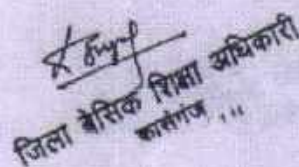 जिला बेसिक शिक्षा अधिकारी
कासगंज